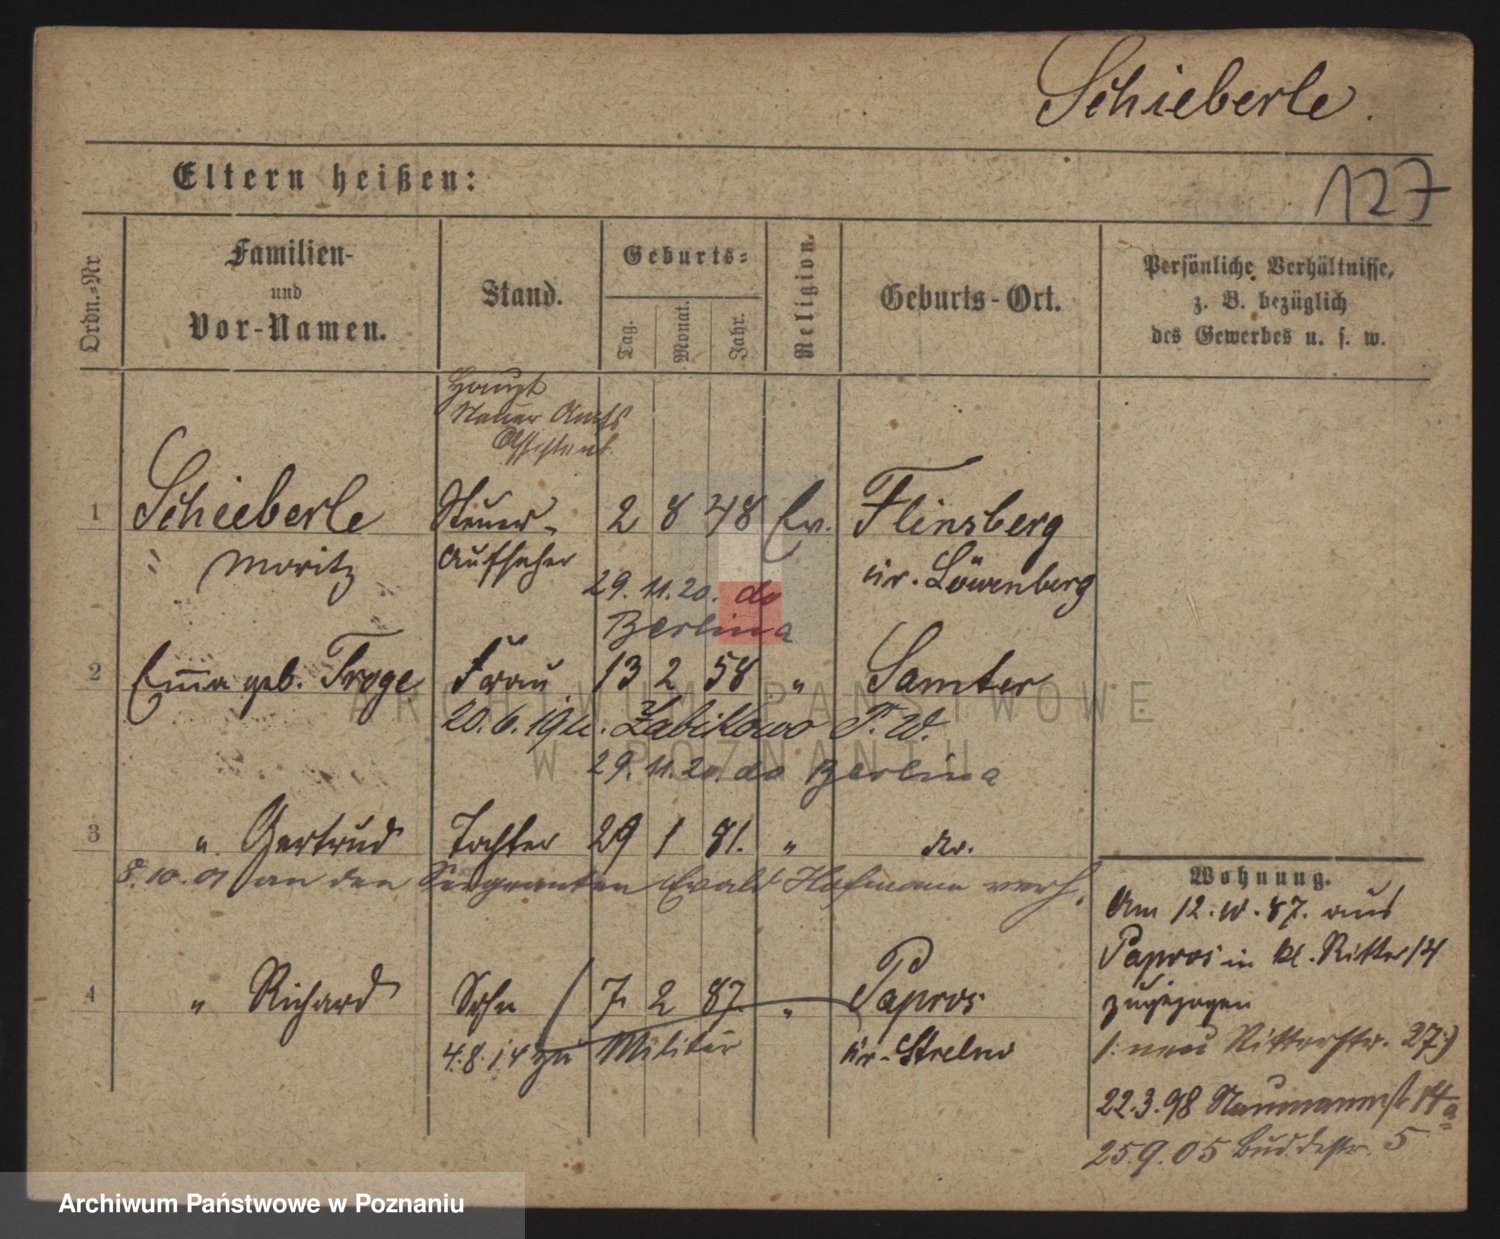 Schieberle.
Eltern heißen:
127
Ordn.-Nr
Familien-
und
Vor-Namen.
Stand.
Geburts-
Tag.
Monat.
Jahr.
Religion.
Geburts-Ort.
Persönliche Verhältnisse,
z. B. bezüglich
des Gewerbes u. s. w.
Haupt
Steuer Amts
Assistent
1 Schieberle Steuer- 2 8 48 Ev. Flinsberg
" Moritz Aufseher Kr. Löwenberg
29.11.20. do
Berlina
2 Emma geb. Troge Frau 13 2 58 " Samter
20.6.19 Żabikowo P. W.
29.11.20. do Berlina
3 " Gertrud Tochter 29 1 81. " do.
8.10.01 an den Sergeanten Ewald Hofmann verh.
4 " Richard Sohn 7 2 87 " Papros
4.8.14 zu Militär Kr. Strelno
Wohnung.
Am 12. 10. 87. aus
Papros in Kl. Ritter 14
zugezogen
1. neu Ritterstr. 37.)
22.3.98 Naumannst 14a
25.9.05 Buddestr. 5
ARCHIWUM PAŃSTWOWE
W POZNANIU
Archiwum Państwowe w Poznaniu